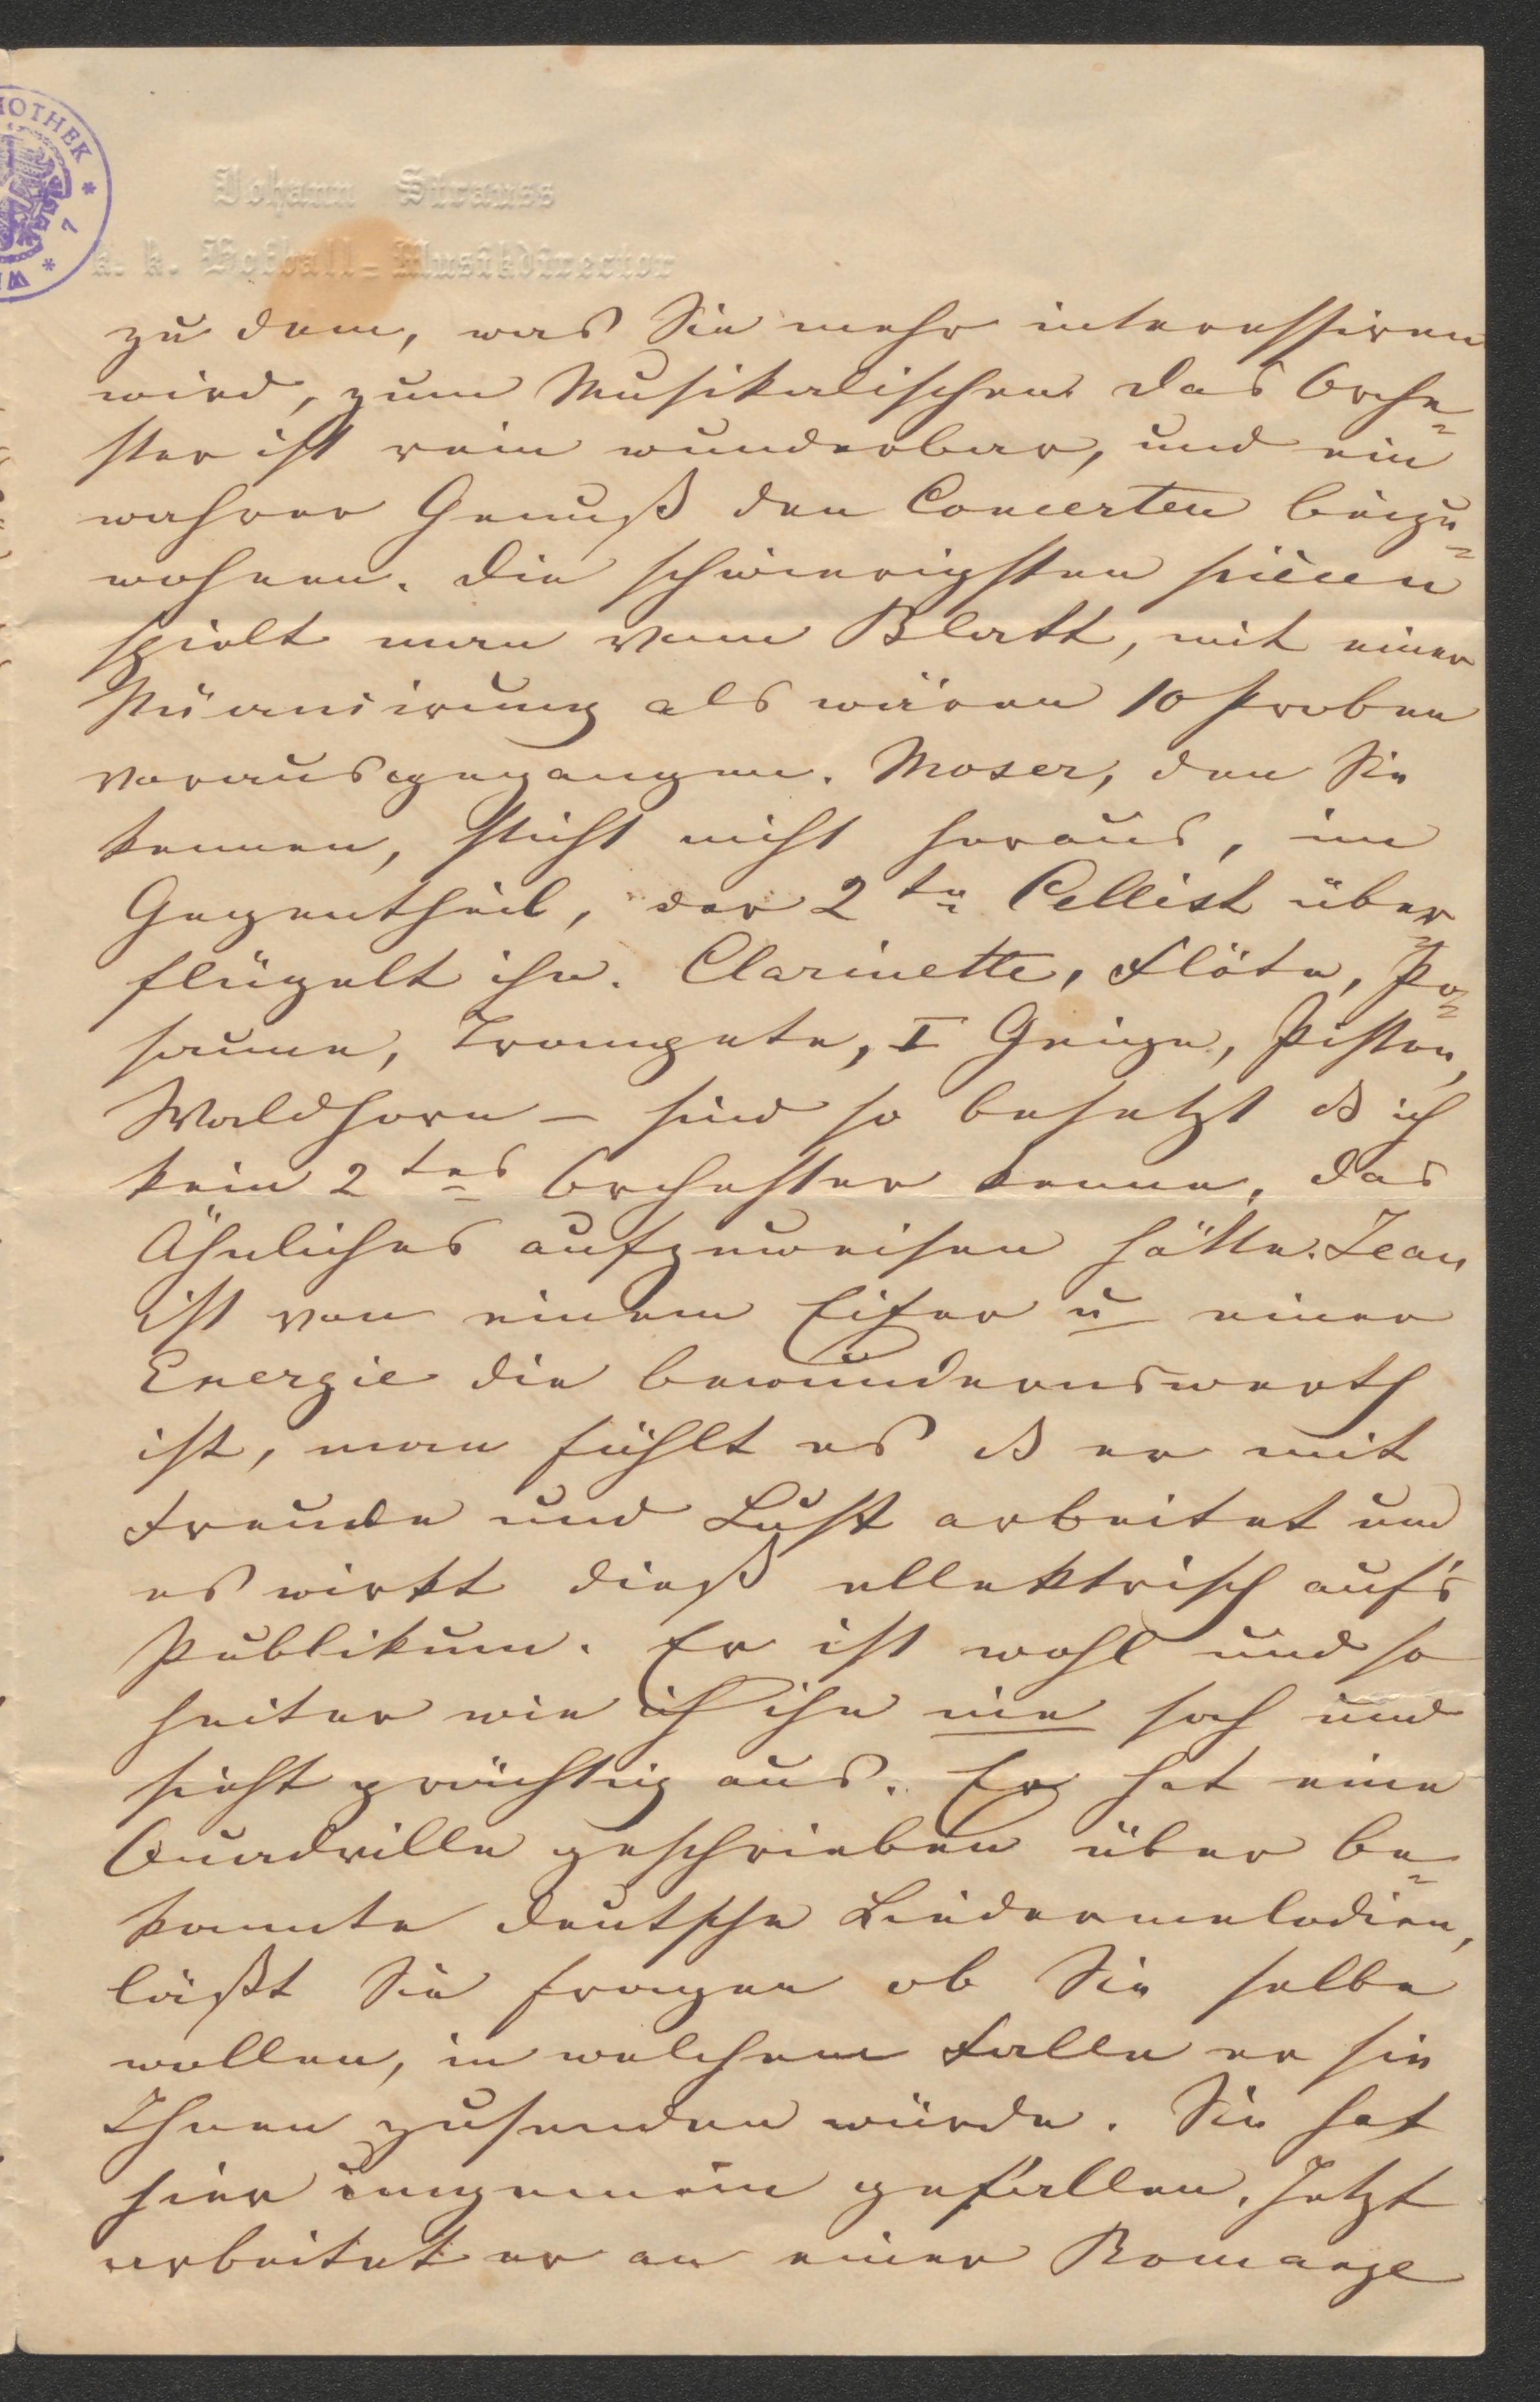 IOTHEK * 7 * WI
Johann Strauss
k. k. Hofball-Musikdirector
zu dem, was Sie mehr interessiren
wird, zum Musikalischen. Das Orche=
ster ist rein wunderbar, und ein
wahrer Genuß den Concerten beizu=
wohnen. Die schwierigsten piècen
spielt man vom Blatt, mit einer
Nüancirung als wären 10 Proben
vorausgegangen. Moser, den Sie
kennen, sticht nicht heraus, im
Gegentheil, der 2te Cellist über=
flügelt ihn. Clarinette, Flöte, Po=
saune, Trompete, I Geige, Piston,
Waldhorn – sind so besetzt dß ich
kein 2tes Orchester kenne, das
Ähnliches aufzuweisen hätte. Jean
ist von einem Eifer u einer
Energie die bewundernswerth
ist, man fühlt es dß er mit
Freude und Lust arbeitet und
es wirkt dieß ellektrisch auf's
Publikum. Er ist wohl und so
heiter wie ich ihn nie sah und
sieht prächtig aus. Er hat eine
Quadrille geschrieben über be=
kannte deutsche Liedermelodien,
läßt Sie fragen ob Sie selbe
wollen, in welchem Falle er sie
Ihnen zusenden würde. Sie hat
hier ungemein gefallen. Jetzt
arbeitet er an einer Romanze